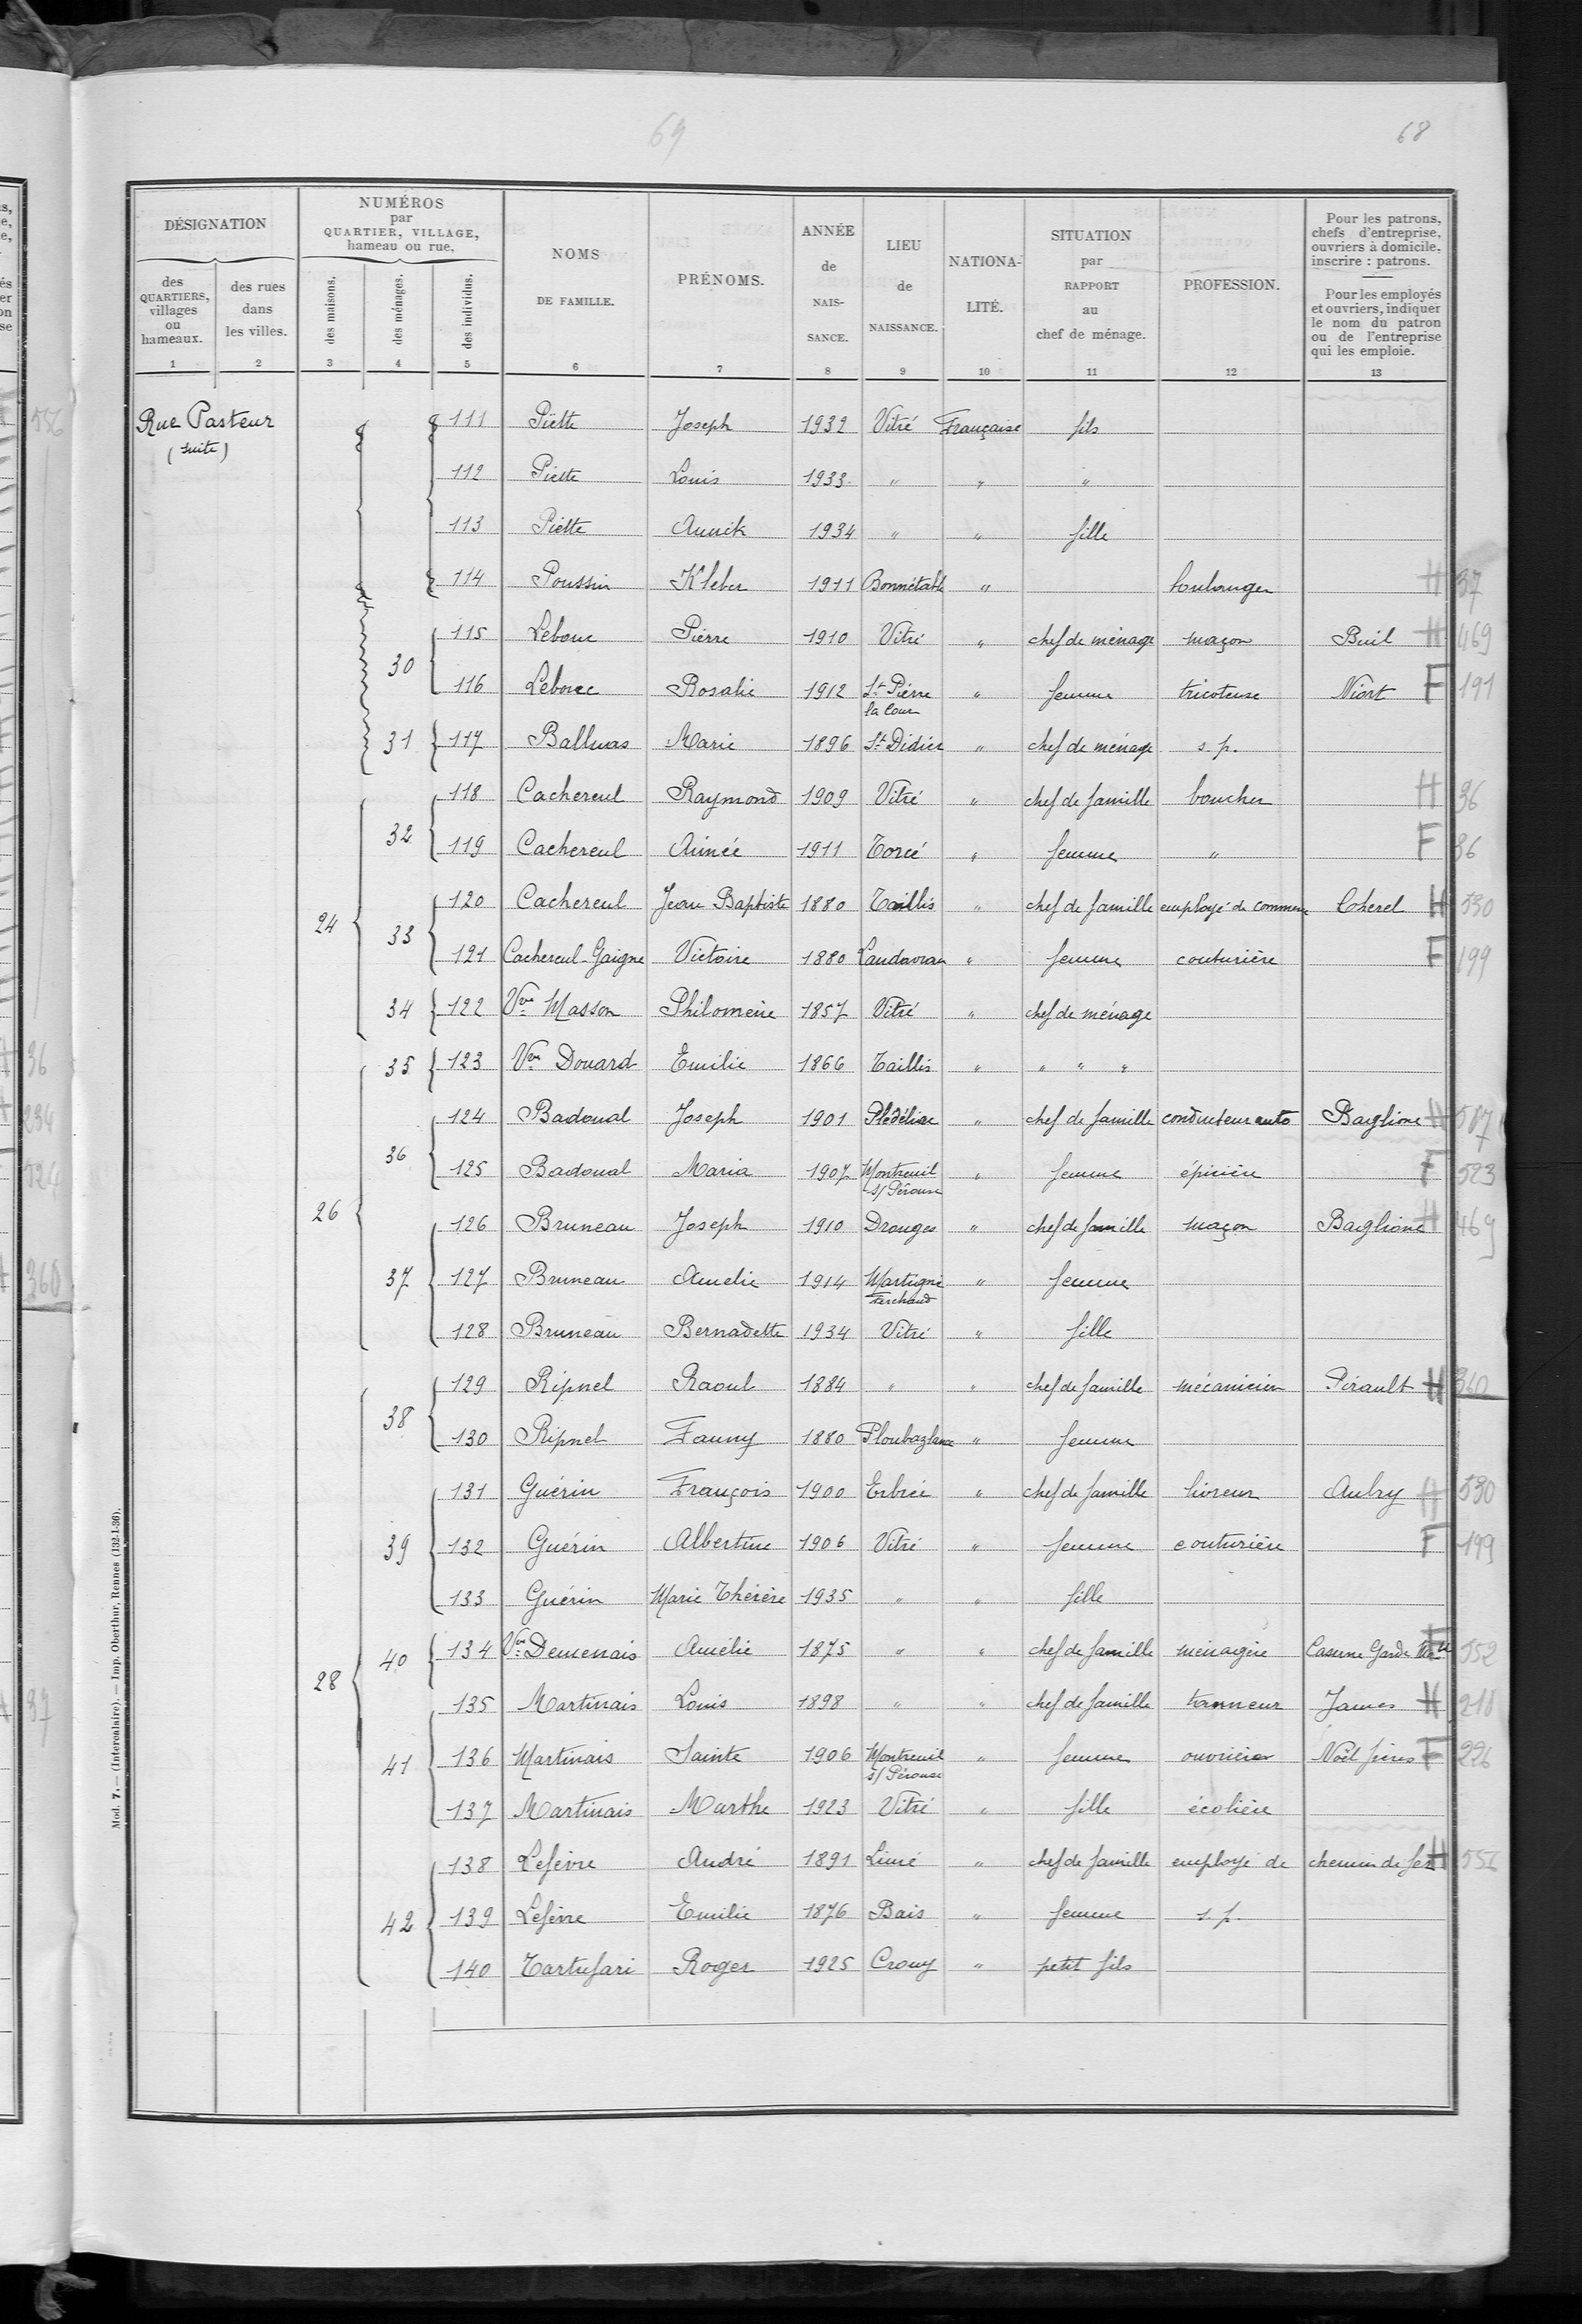 69
68
DÉSIGNATION
NUMÉROS
par
QUARTIER, VILLAGE,
hameau ou rue,
NOMS
DE FAMILLE.
PRÉNOMS.
ANNÉE
de
NAIS-
SANCE.
LIEU
de
NAISSANCE.
NATIONA-
LITÉ.
SITUATION
par
RAPPORT
au
chef de ménage.
PROFESSION.
Pour les patrons,
chefs d'entreprise,
ouvriers à domicile,
inscrire : patrons.
Pour les employés
et ouvriers, indiquer
le nom du patron
ou de l'entreprise
qui les emploie.
des
QUARTIERS,
villages
ou
hameaux.
des rues
dans
les villes.
des maisons.
des ménages.
des individus.
1 2 3 4 5 6 7 8 9 10 11 12 13
Rue Pasteur 111 Piette Joseph 1932 Vitré Française fils
(suite)
112 Piette Louis 1933 " " "
113 Piette Annick 1934 " " fille
114 Poussin Kleber 1911 Bonnétable " boulanger H 37
115 Lebouc Pierre 1910 Vitré " chef de ménage maçon Buil H 469
30
116 Lebouc Rosalie 1912 St Pierre " femme tricoteuse Niort F 191
la Cour
31 117 Marie 1896 St Didier " chef de ménage s.p.
118 Cachereul Raymond 1909 Vitré " chef de famille boucher H 36
32
119 Cachereul Aimée 1911 Torcé " femme " F 36
120 Cachereul Jean Baptiste 1880 Taillis " chef de famille employé de commerce Coherel H 530
24 33
121 Cachereul-Gaigne Victoire 1880 Landavran " femme couturière F 199
34 122 Vve Masson Philomène 1857 Vitré " chef de ménage
35 123 Vve Douard Emilie 1866 Taillis " " " "
124 Badoual Joseph 1901 Plédéliac " chef de famille conducteur auto Baglione H 587
36
125 Badoual Maria 1907 Montreuil " femme épicière F 523
s/ Pérouse
26
126 Bruneau Joseph 1910 Drouges " chef de famille maçon Baglione H 469
37 127 Bruneau Amelie 1914 Martigné " femme
Ferchaud
128 Bruneau Bernadette 1934 Vitré " fille
129 Ripnel Raoul 1884 " " chef de famille mécanicien Pirault H 360
38
130 Ripnel Fanny 1880 Ploubazlanec " femme
131 Guérin François 1900 Erbrée " chef de famille livreur Aubry H 530
39 132 Guérin Albertine 1906 Vitré " femme couturière F 199
133 Guérin Marie Thérèse 1935 " " fille
40 134 Vve Demenais Amélie 1875 " " chef de famille ménagère Caserne Garde Mle F 552
28
135 Martinais Louis 1898 " " chef de famille tanneur James H 218
41 136 Martinais Sainte 1906 Montreuil " femme ouvrière Noël frères F 226
s/ Pérouse
137 Martinais Marthe 1923 Vitré " fille écolière
138 Lefèvre André 1891 Livré " chef de famille employé de chemin de fer H 556
42 139 Lefèvre Emilie 1876 Bais " femme s.p.
140 Tartufari Roger 1925 Crouy " petit fils
Mod. 7. — (Intercalaire). — Imp. Oberthur, Rennes (132-1-36).